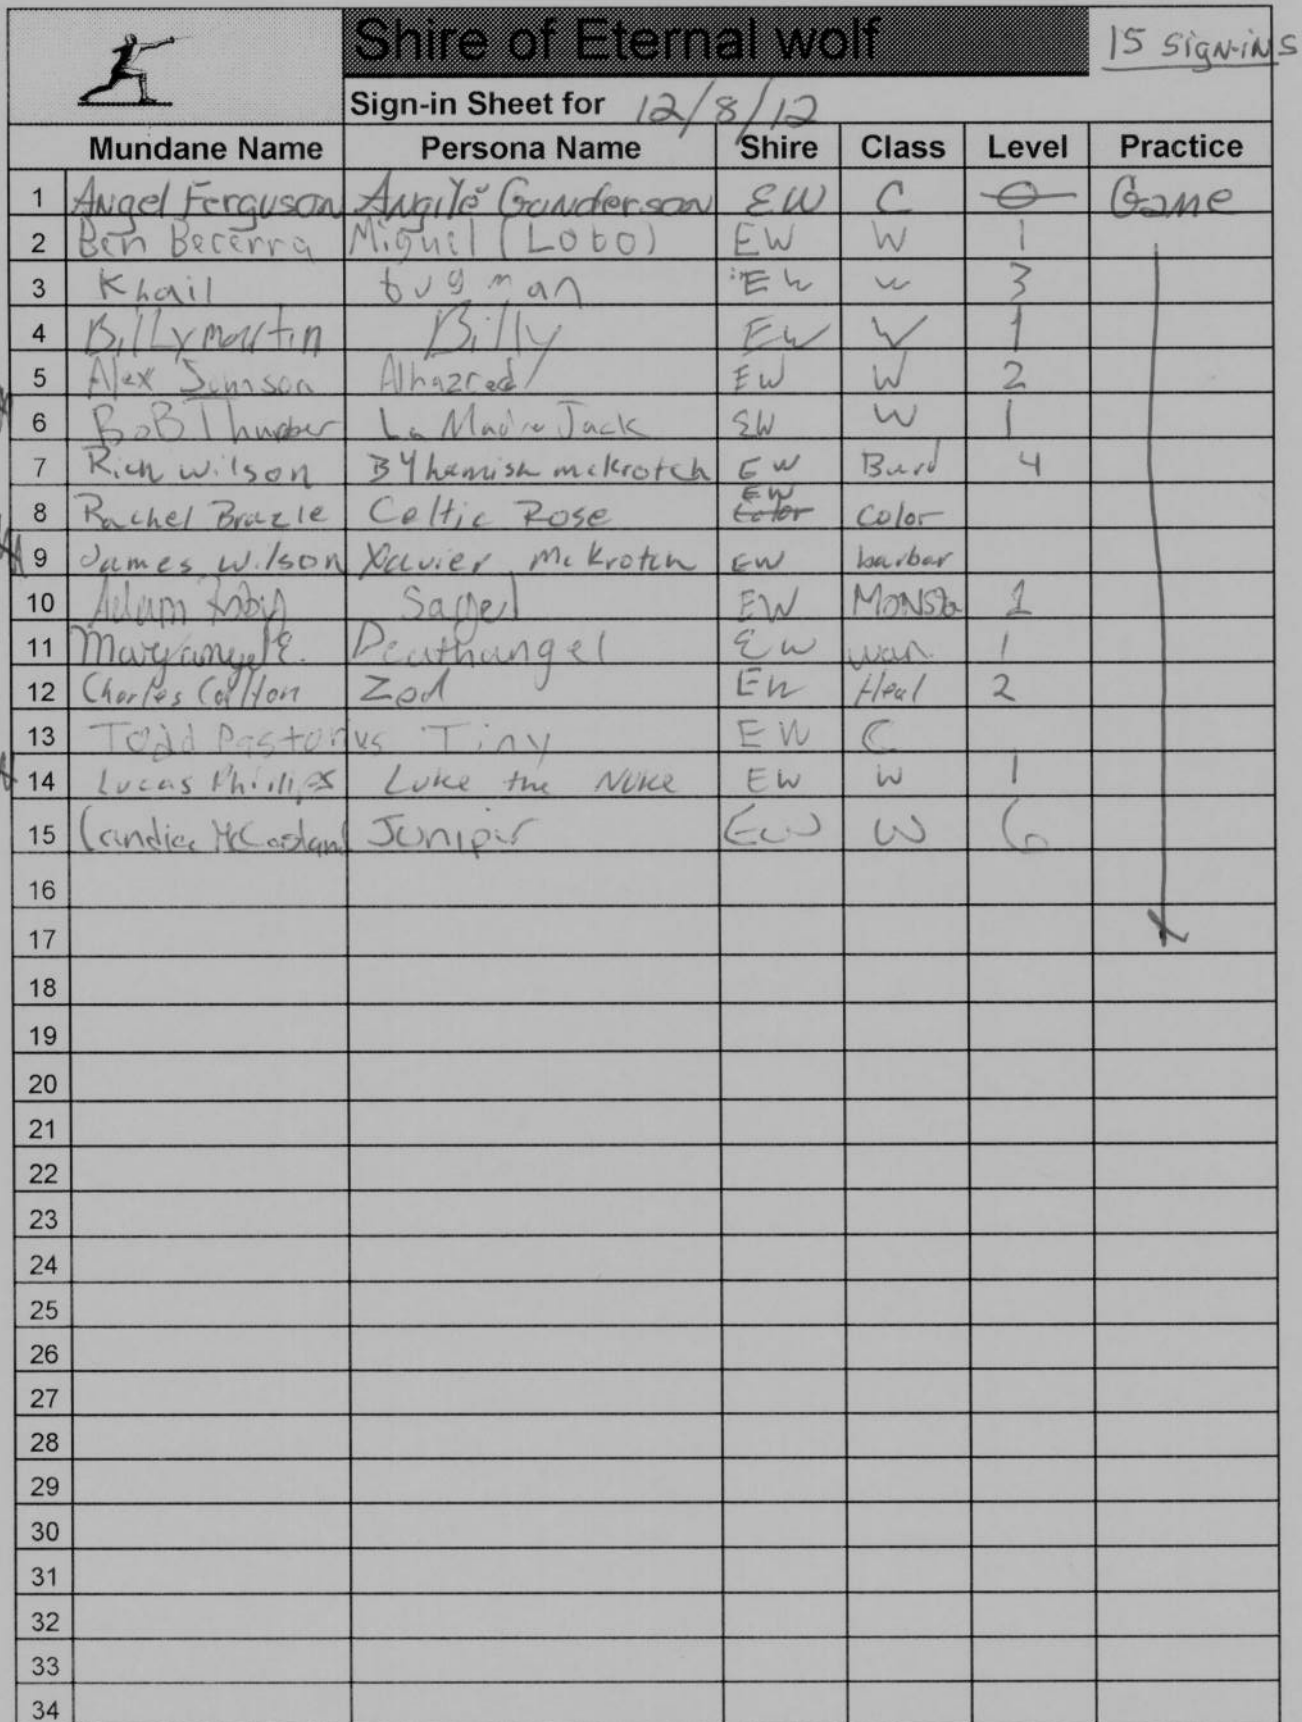 Shire of Eternal wolf
15 sign-ins
Sign-in Sheet for 12/8/12
Mundane Name Persona Name Shire Class Level Practice
1 Angel Ferguson Angilé Gunderson EW C Game
2 Ben Becerra Miguel (Lobo) EW W 1
3 Khail bugman EW w 3
4 Billy martin Billy EW W 1
5 Alex Alhazred EW W 2
6 BoB Thurber La Madre Jack EW W 1
7 Rich Wilson hamish mckrotch EW Bard 4
8 Rachel Brazle Celtic Rose EW Color
9 James Wilson Xavier McKrotch EW barbar
10 Adam EW 1
11 Deathangel EW war. 1
12 Charles Zod EW Heal 2
13 Todd Pastorius Tiny EW C
14 Lucas Phillips Luke the Nuke EW W 1
15 Candice Junipir EW W 6
16
17
18
19
20
21
22
23
24
25
26
27
28
29
30
31
32
33
34